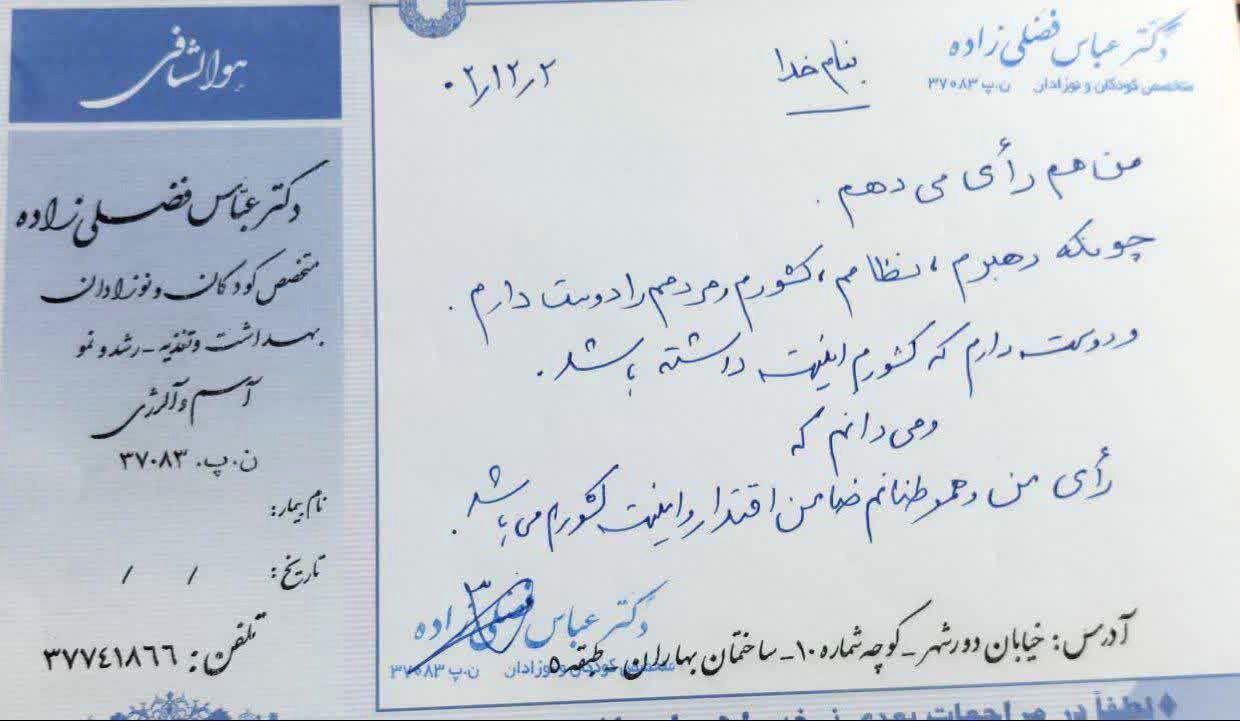 دکتر عباس فضلی زاده
متخصص کودکان و نوزادان ن.پ ۳۷۰۸۳
بنام خدا
۰۲٫۱۲٫۲
من هم رأی می دهم.
چونکه رهبرم، نظامم، کشورم و مردمم را دوست دارم.
و دوست دارم که کشورم امنیت داشته باشد.
و می دانم که
رأی من و هموطنانم ضامن اقتدار و امنیت کشورم می باشد.
دکتر عباس فضلی زاده
متخصص کودکان و نوزادان ن.پ ۳۷۰۸۳
آدرس: خیابان دورشهر - کوچه شماره ۱۰ - ساختمان بهاران - طبقه ۵
لطفاً در مراجعات بعدی
هوالشافی
دکتر عباس فضلی زاده
متخصص کودکان و نوزادان
بهداشت و تغذیه - رشد و نمو
آسم و آلرژی
ن.پ. ۳۷۰۸۳
نام بیمار:
تاریخ: / /
تلفن: ۳۷۷۴۱۸۶۶